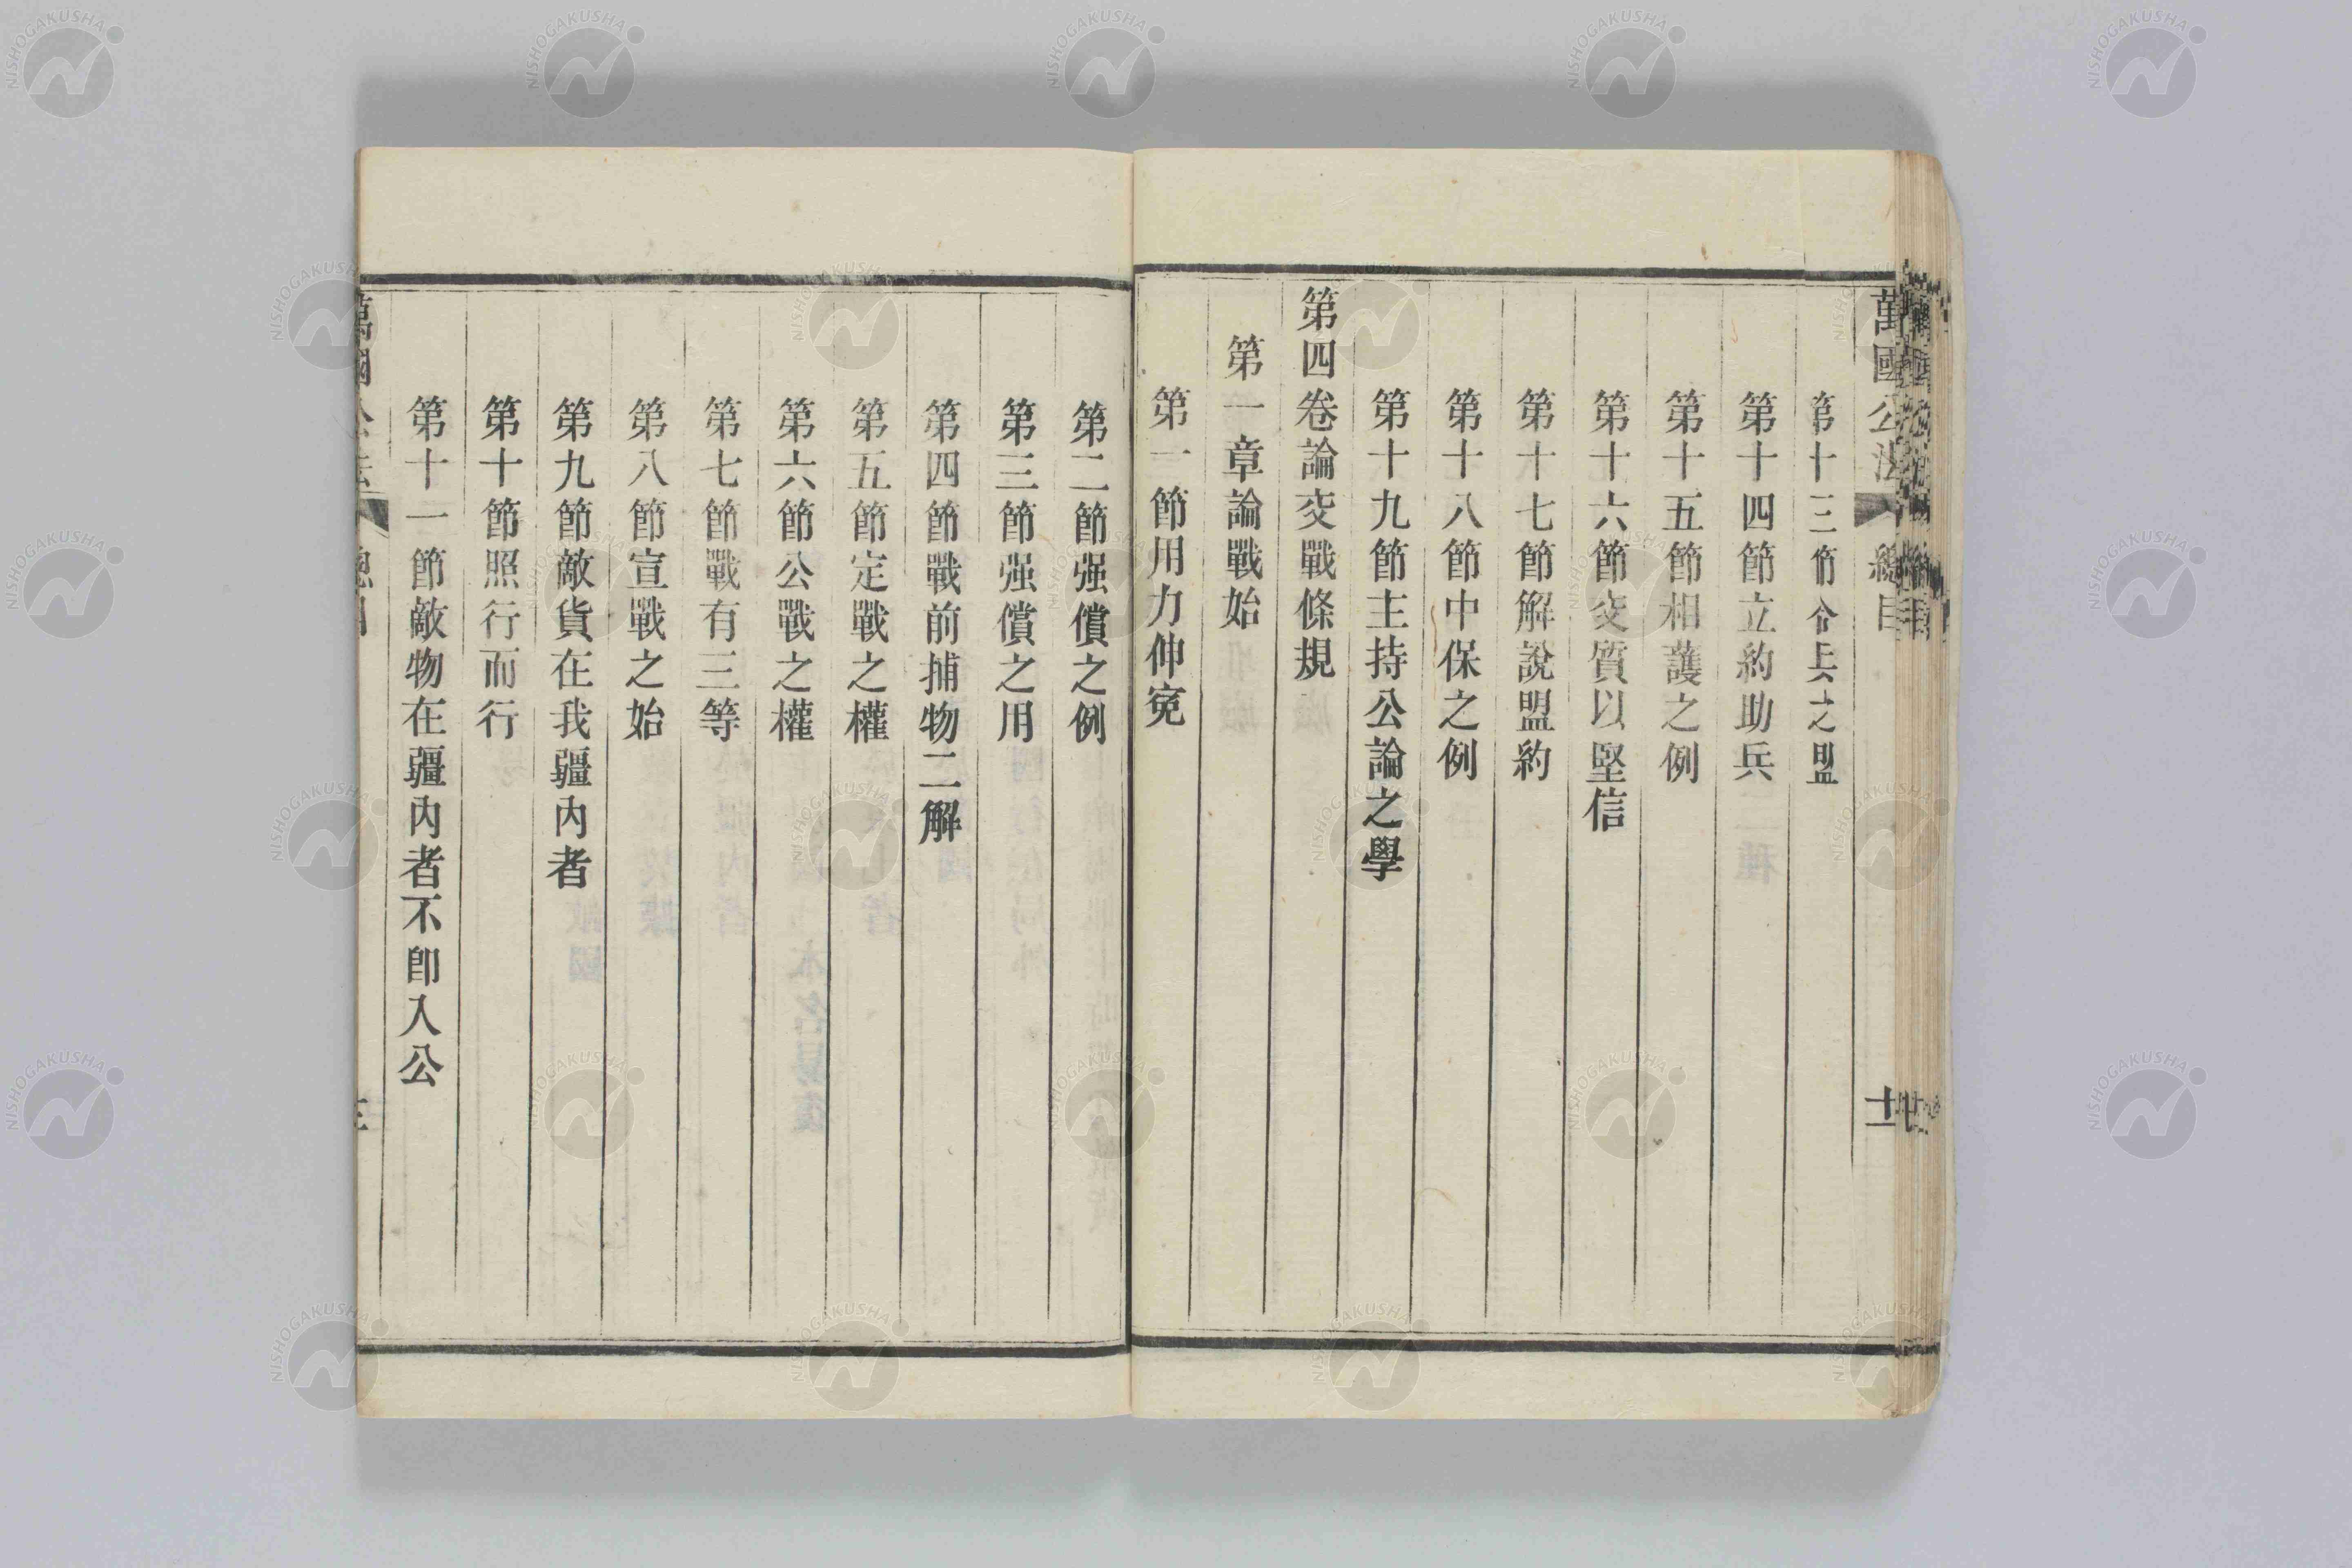 萬國公法 總目 十二
第十三節合兵之盟
第十四節立約助兵
第十五節相護之例
第十六節交質以堅信
第十七節解說盟約
第十八節中保之例
第十九節主持公論之學
第四卷論交戰條規
第一章論戰始
第一節用力伸冤
第二節强償之例
第三節强償之用
第四節戰前捕物二解
第五節定戰之權
第六節公戰之權
第七節戰有三等
第八節宣戰之始
第九節敵貨在我疆內者
第十節照行而行
第十一節敵物在疆內者不卽入公
萬國公法 總目
NISHOGAKUSHA